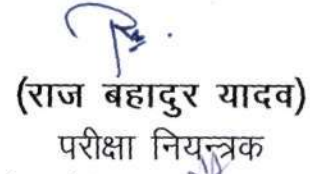 (राज बहादुर यादव)
परीक्षा नियन्त्रक